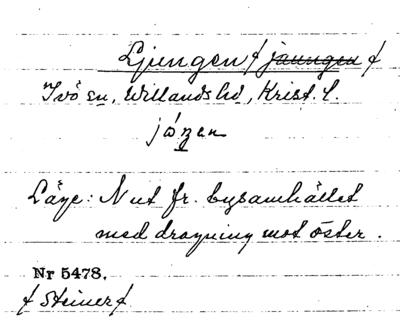 Ljungen ɟ jaungen ɟ
Ivö sn, Willands hd, Krist. l.
Läge: N ut fr. bysamhället
med dragning mot öster.
Nr 5478.
ɟ Steiner ɟ